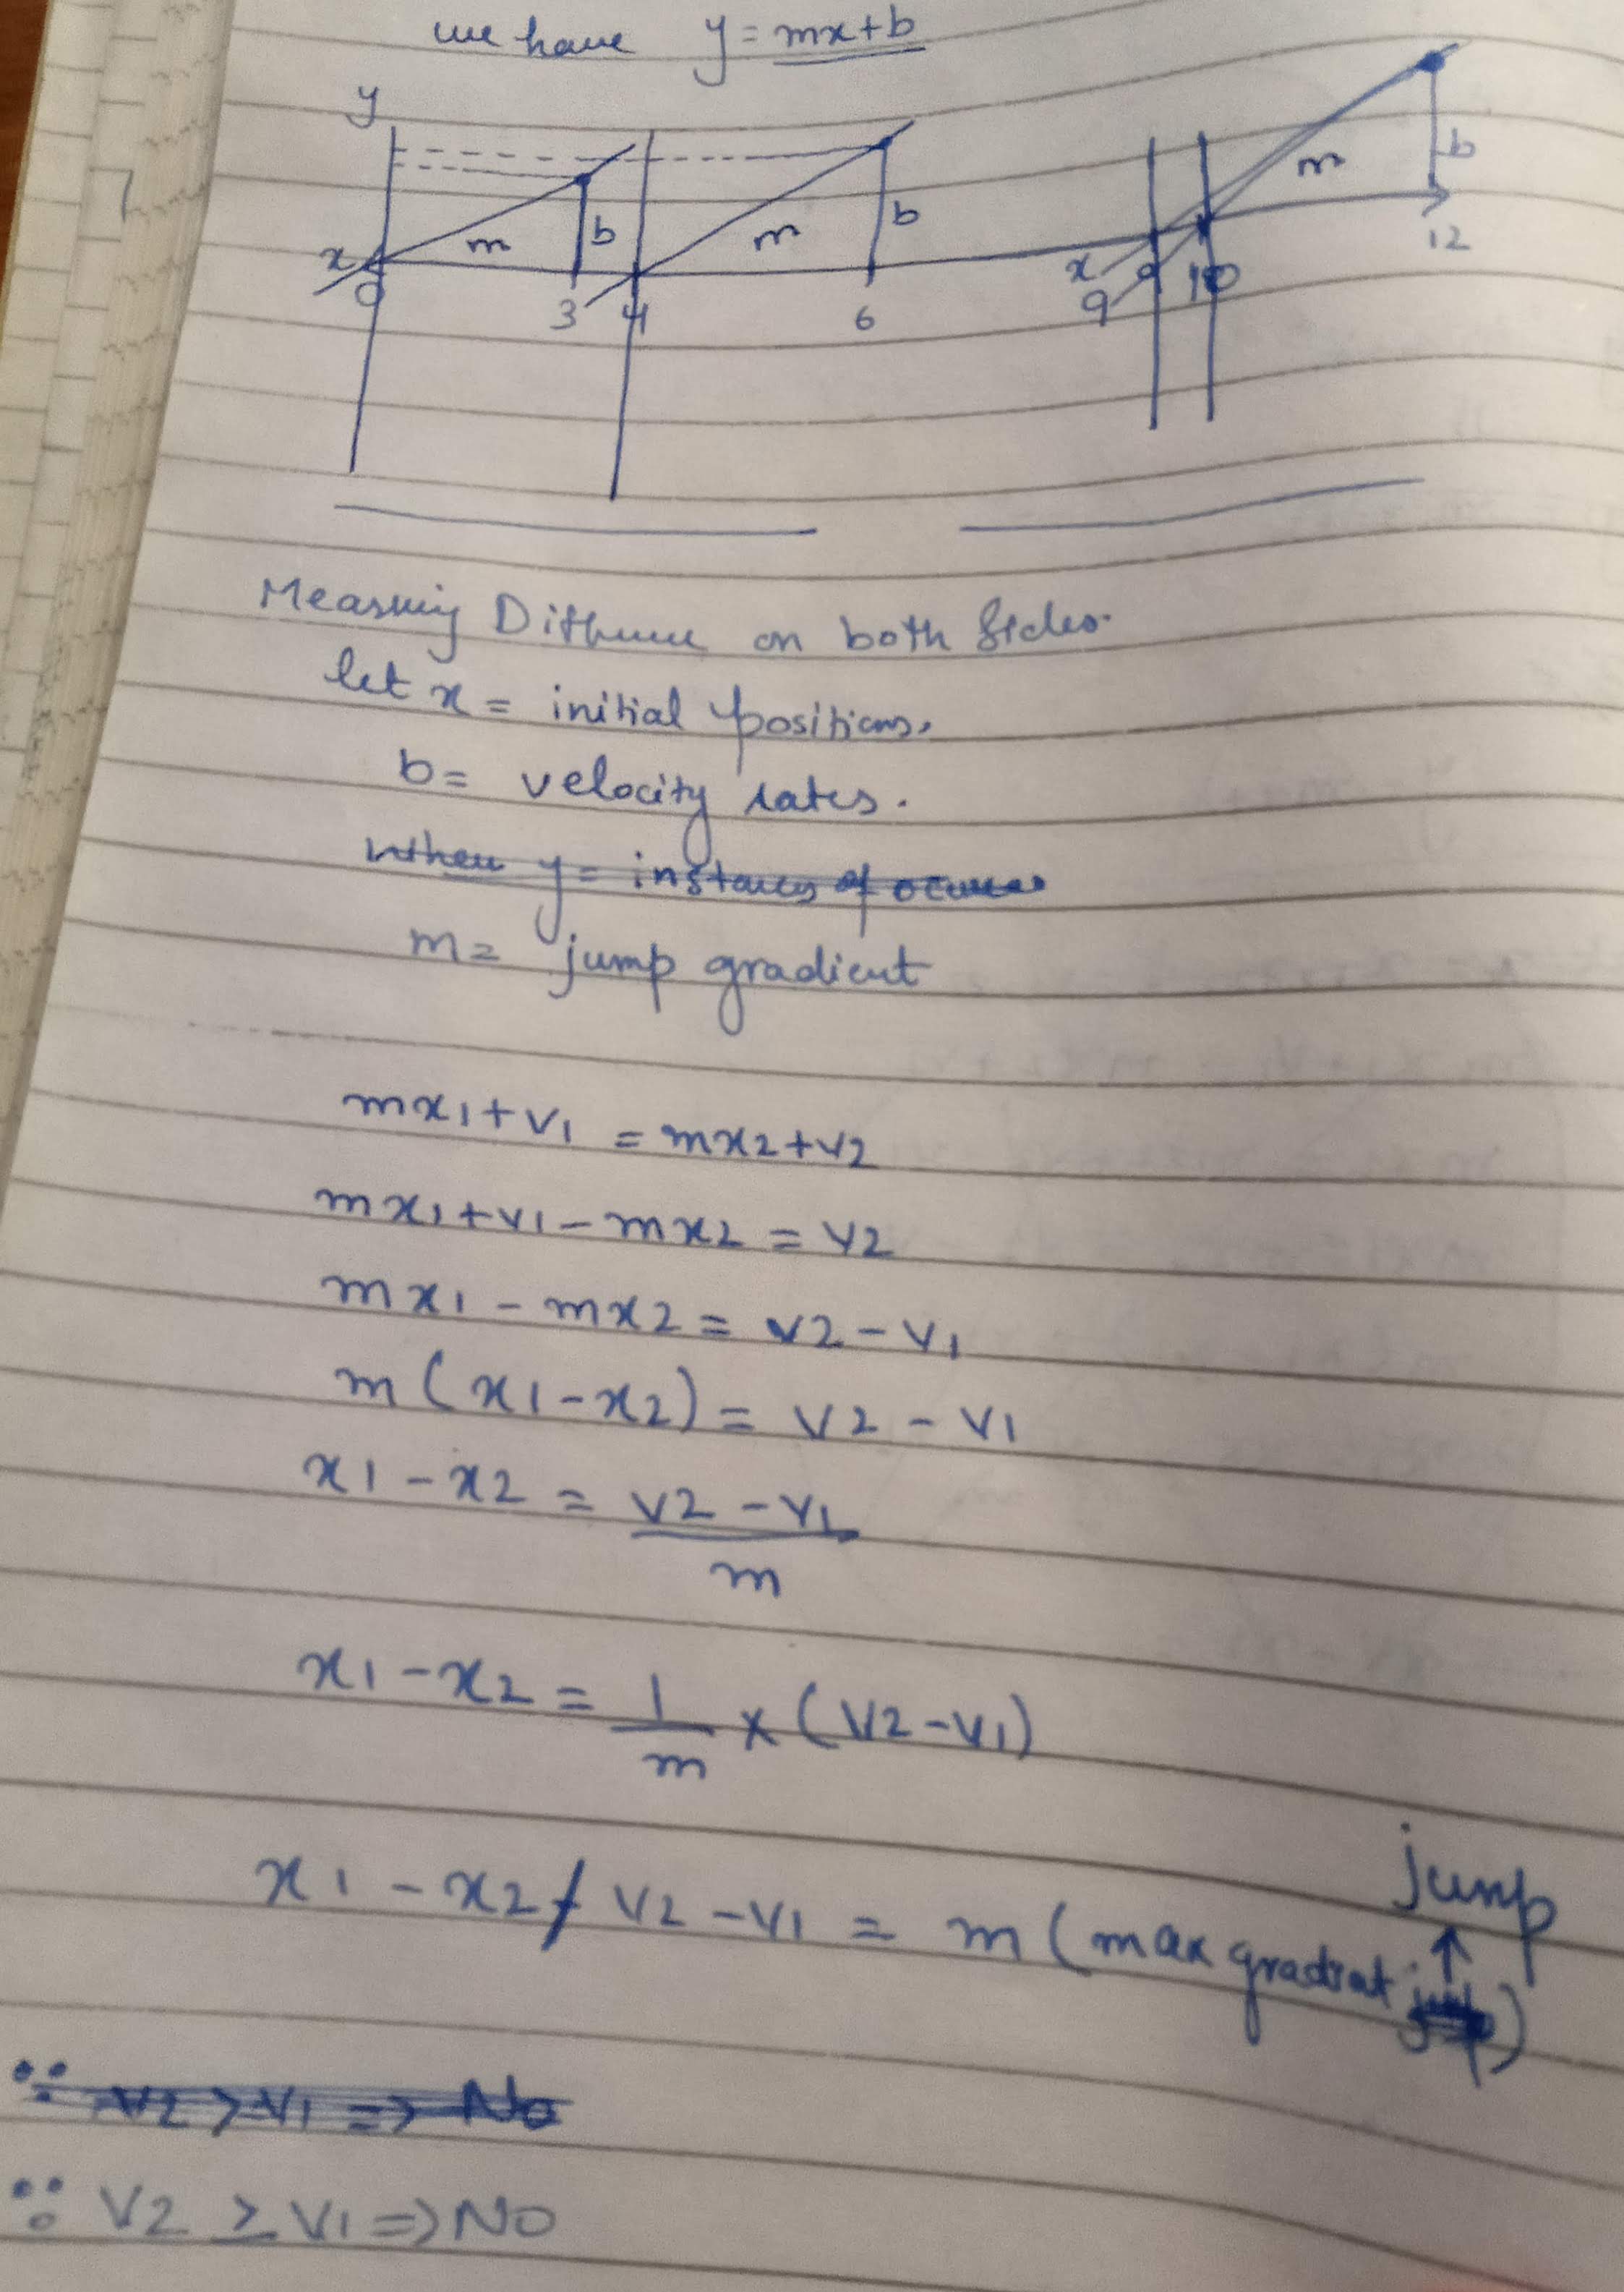 we have y = mx+b
y
m b m b m b
x x
0 3 4 6 9 9 10 12
Measuring Difference on both Sides.
let x = initial positions.
b = velocity rates.
when y = instances of
m = jump gradient
mx1+v1 = mx2+v2
mx1+v1-mx2 = v2
mx1-mx2 = v2-v1
m(x1-x2) = v2-v1
x1-x2 = v2-v1
m
x1-x2 = 1/m x (v2-v1)
jump
↑
x1-x2/v2-v1 = m (max gradiat jump)
∵ v2 > v1 => No
∵ v2 ≥ v1 => No